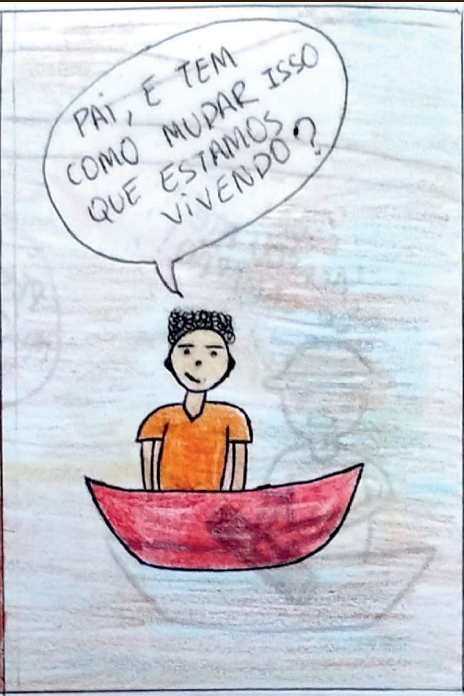 PAI, E TEM
COMO MUDAR ISSO
QUE ESTAMOS
VIVENDO?